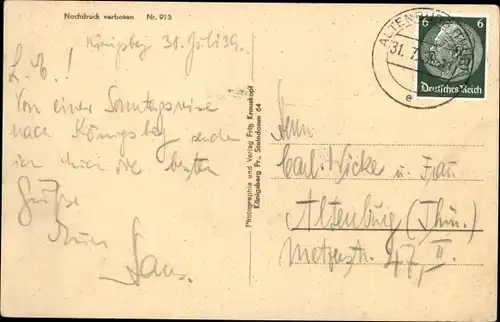 Nachdruck verboten Nr. 913
Königsbg 30. Juli 39.
L. A.!
Von einer Sonntagsreise
nach Königsbg senden
wir Euch die besten
Grüße
Euer
Hans.
Photographie und Verlag Fritz Krauskopf
Königsberg Pr., Steindamm 64
ALTENBURG (THÜR)
31. 7.
e
6 6
Deutsches Reich
Herrn
Carl Wicke u. Frau
Altenburg (Thür.)
Metzerstr. 47, II.